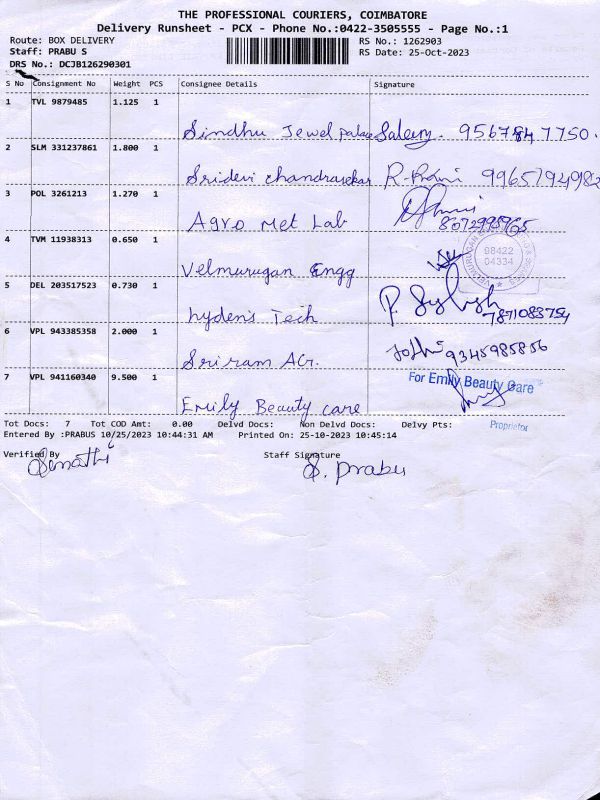 THE PROFESSIONAL COURIERS, COIMBATORE
Delivery Runsheet - PCX - Phone No.:0422-3505555 - Page No.:1
Route: BOX DELIVERY RS No.: 1262903
Staff: PRABU S RS Date: 25-Oct-2023
DRS No.: DCJB126290301
S No Consignment No Weight PCS Consignee Details Signature
1 TVL 9879485 1.125 1
Sindhu Jewel palace
2 SLM 331237861 1.800 1
Sridevi chandrasekar
3 POL 3261213 1.270 1
Agro Met Lab
4 TVM 11938313 0.650 1
98422
04334
Velmurugan Engg
5 DEL 203517523 0.730 1
hydens Tech 7871083754
6 VPL 943385358 2.000 1
9345985856
Sriram Acr.
7 VPL 941160340 9.500 1 For Emily Beauty Care
Emily Beauty care
Proprietor
Tot Docs: 7 Tot COD Amt: 0.00 Delvd Docs: Non Delvd Docs: Delvy Pts:
Entered By :PRABUS 10/25/2023 10:44:31 AM Printed On: 25-10-2023 10:45:14
Verified By Staff Signature
S. Prabu